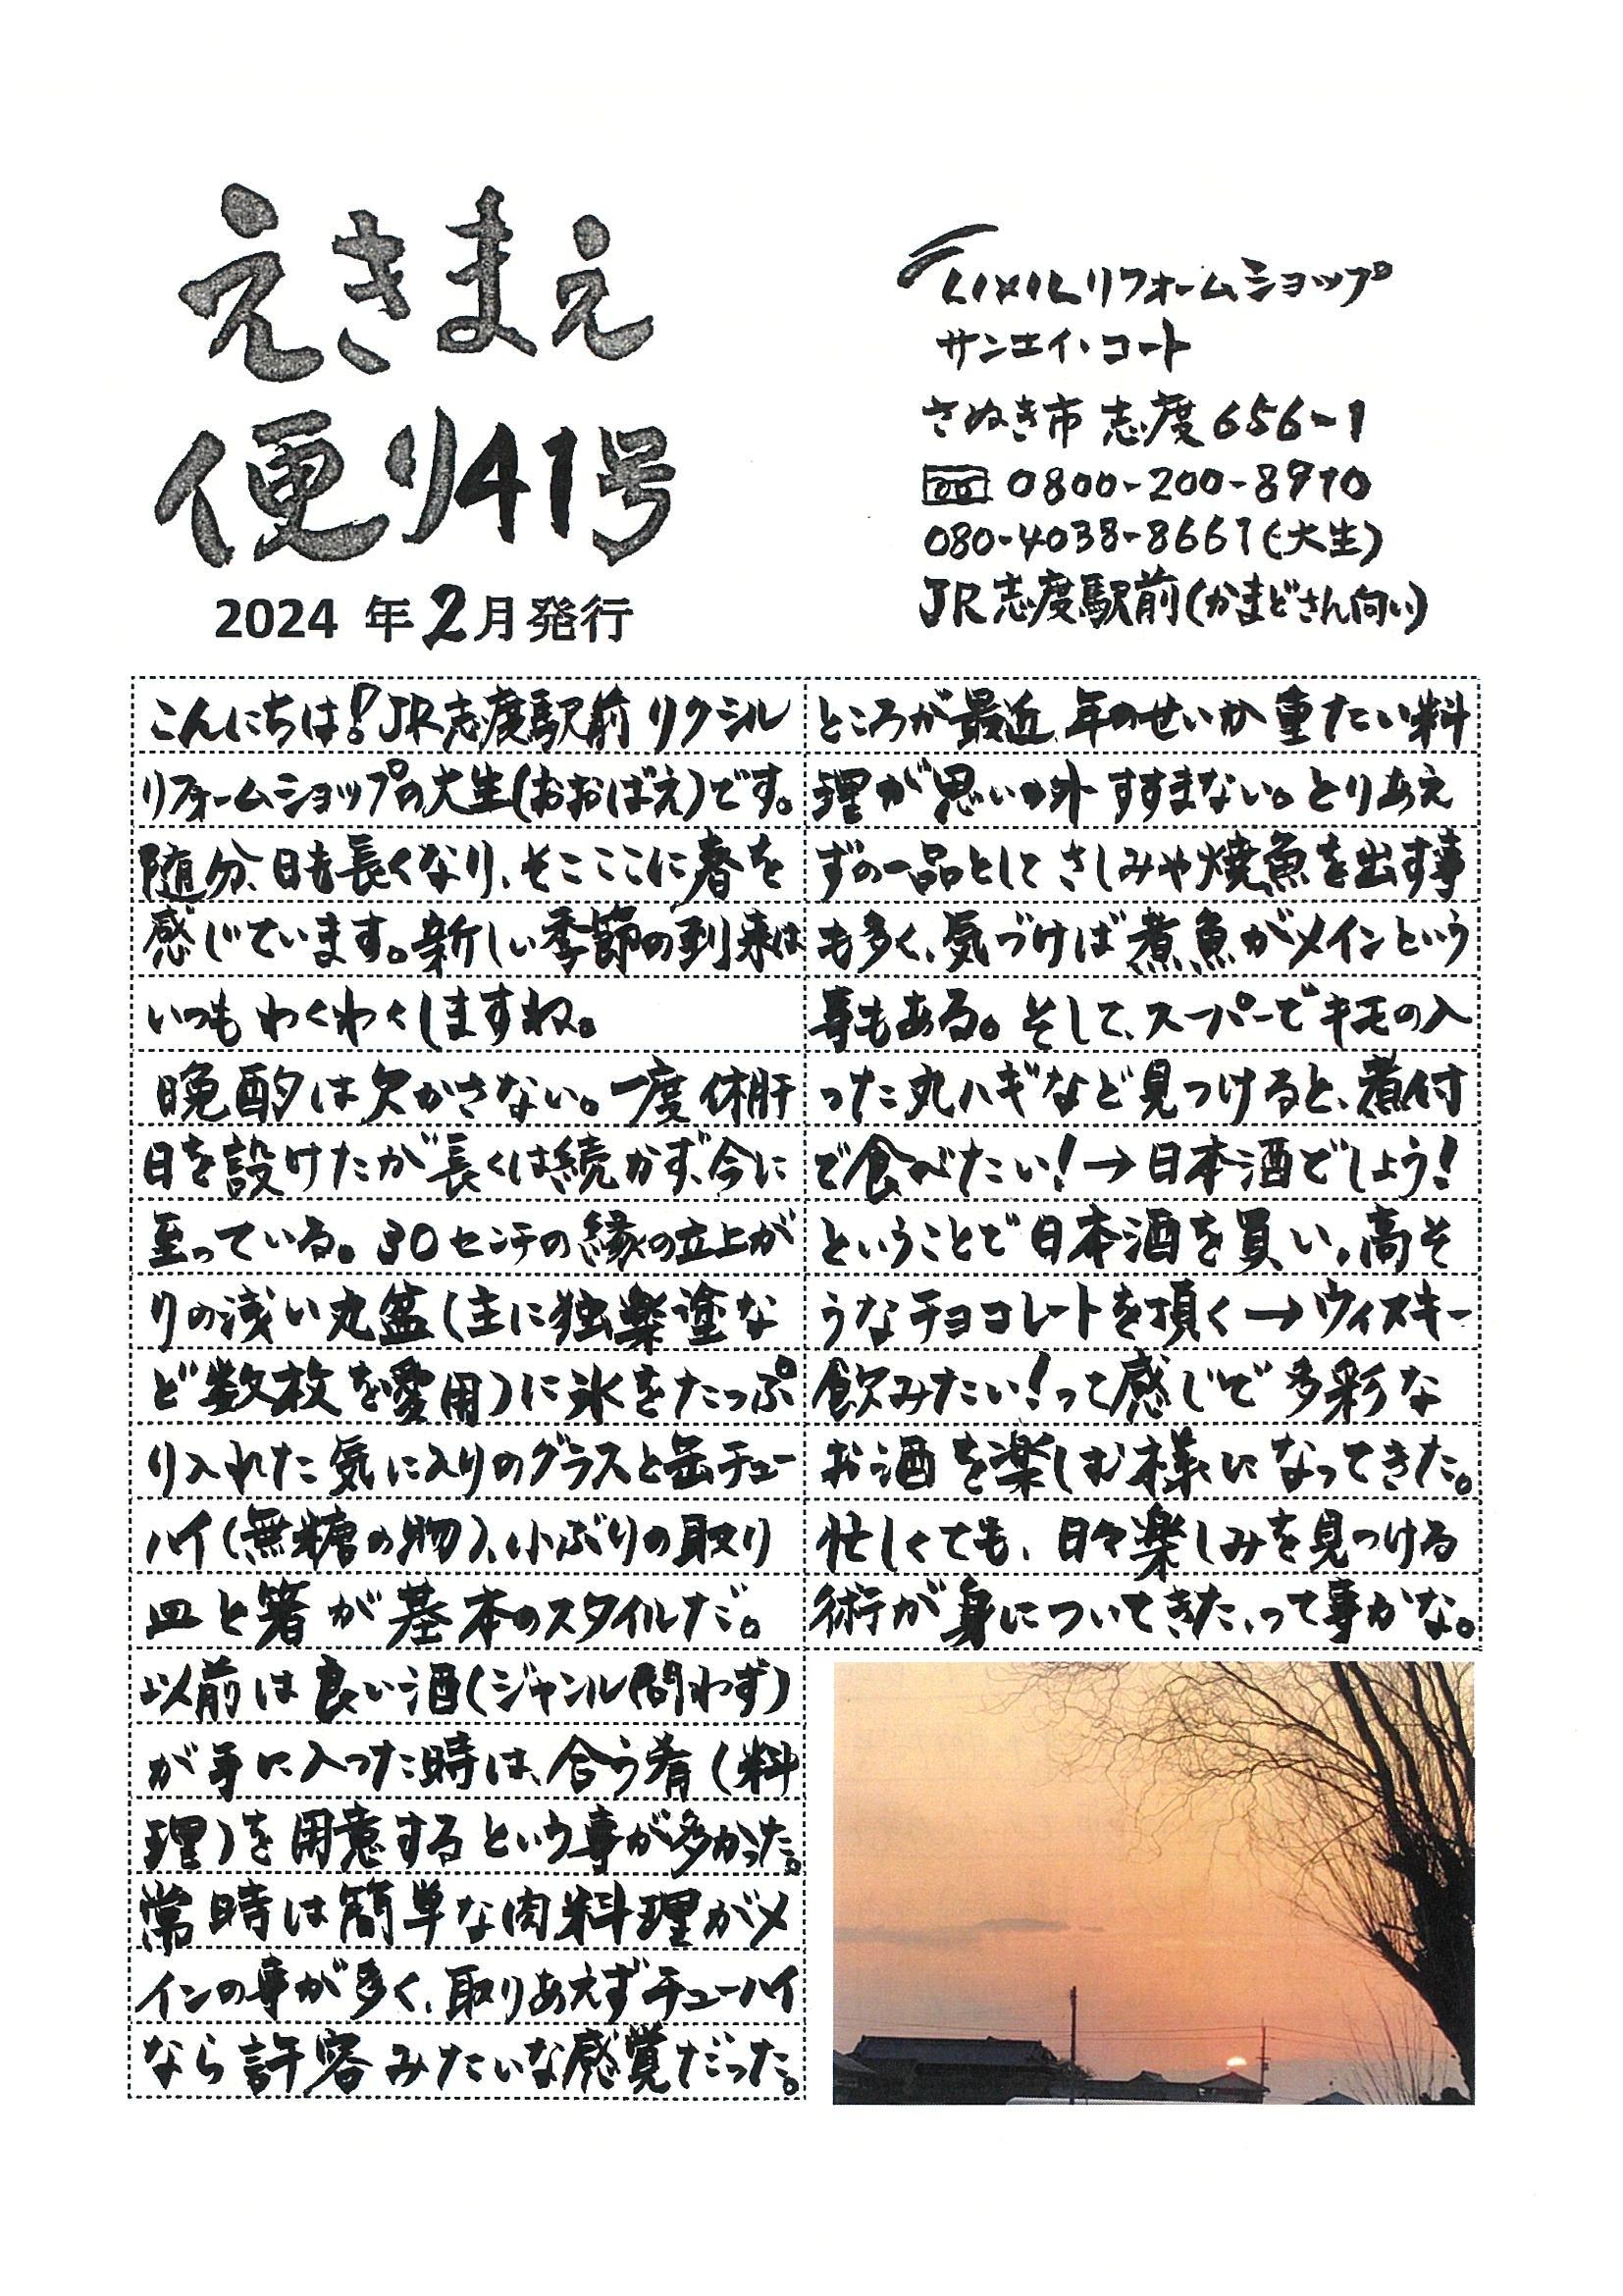 えきまえ
便り41号
2024 年2月発行
LIXILリフォームショップ
サンエイ・コート
さぬき市 志度656-1
0800-200-8910
080-4038-8661(大生)
JR志度駅前(かまどさん向い)
こんにちは!JR志度駅前 リクシル
リフォームショップの大生(おおばえ)です。
随分、日も長くなり、そこここに春を
感じています。新しい季節の到来は
いつも わくわくしますね。
晩酌は欠かさない。一度 休肝
日を設けたが長くは続かず、今に
至っている。30センチの縁の立上が
りの浅い丸盆(主に独楽塗な
ど数枚を愛用)に氷をたっぷ
り入れた気に入りのグラスと缶チュー
ハイ(無糖の物)、小ぶりの取り
皿と箸が基本のスタイルだ。
以前は良い酒(ジャンル問わず)
が手に入った時は、合う肴(料
理)を用意するという事が多かった。
常時は簡単な肉料理がメ
インの事が多く、取りあえずチューハイ
なら許容みたいな感覚だった。
ところが最近、年のせいか重たい料
理が思いの外すすまない。とりあえ
ずの一品としてさしみや焼魚を出す事
も多く、気づけば煮魚がメインという
事もある。そして、スーパーでキモの入
った丸ハギなど見つけると、煮付
で食べたい!→日本酒でしょう!
ということで日本酒を買い、高そ
うなチョコレートを頂く→ウィスキー
飲みたい!って感じで多彩な
お酒を楽しむ様になってきた。
忙しくても、日々楽しみを見つける
術が身についてきた、って事かな。